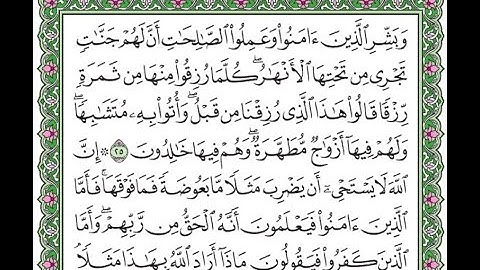 وَبَشِّرِ ٱلَّذِينَ ءَامَنُوا۟ وَعَمِلُوا۟ ٱلصَّٰلِحَٰتِ أَنَّ لَهُمْ جَنَّٰتٍ
تَجْرِى مِن تَحْتِهَا ٱلْأَنْهَٰرُ ۖ كُلَّمَا رُزِقُوا۟ مِنْهَا مِن ثَمَرَةٍ
رِّزْقًا قَالُوا۟ هَٰذَا ٱلَّذِى رُزِقْنَا مِن قَبْلُ ۖ وَأُتُوا۟ بِهِۦ مُتَشَٰبِهًا ۖ
وَلَهُمْ فِيهَآ أَزْوَٰجٌ مُّطَهَّرَةٌ ۖ وَهُمْ فِيهَا خَٰلِدُونَ ٢٥ ۞ إِنَّ
ٱللَّهَ لَا يَسْتَحْىِۦٓ أَن يَضْرِبَ مَثَلًا مَّا بَعُوضَةً فَمَا فَوْقَهَا ۚ فَأَمَّا
ٱلَّذِينَ ءَامَنُوا۟ فَيَعْلَمُونَ أَنَّهُ ٱلْحَقُّ مِن رَّبِّهِمْ ۖ وَأَمَّا
ٱلَّذِينَ كَفَرُوا۟ فَيَقُولُونَ مَاذَآ أَرَادَ ٱللَّهُ بِهَٰذَا مَثَلًا ۘ